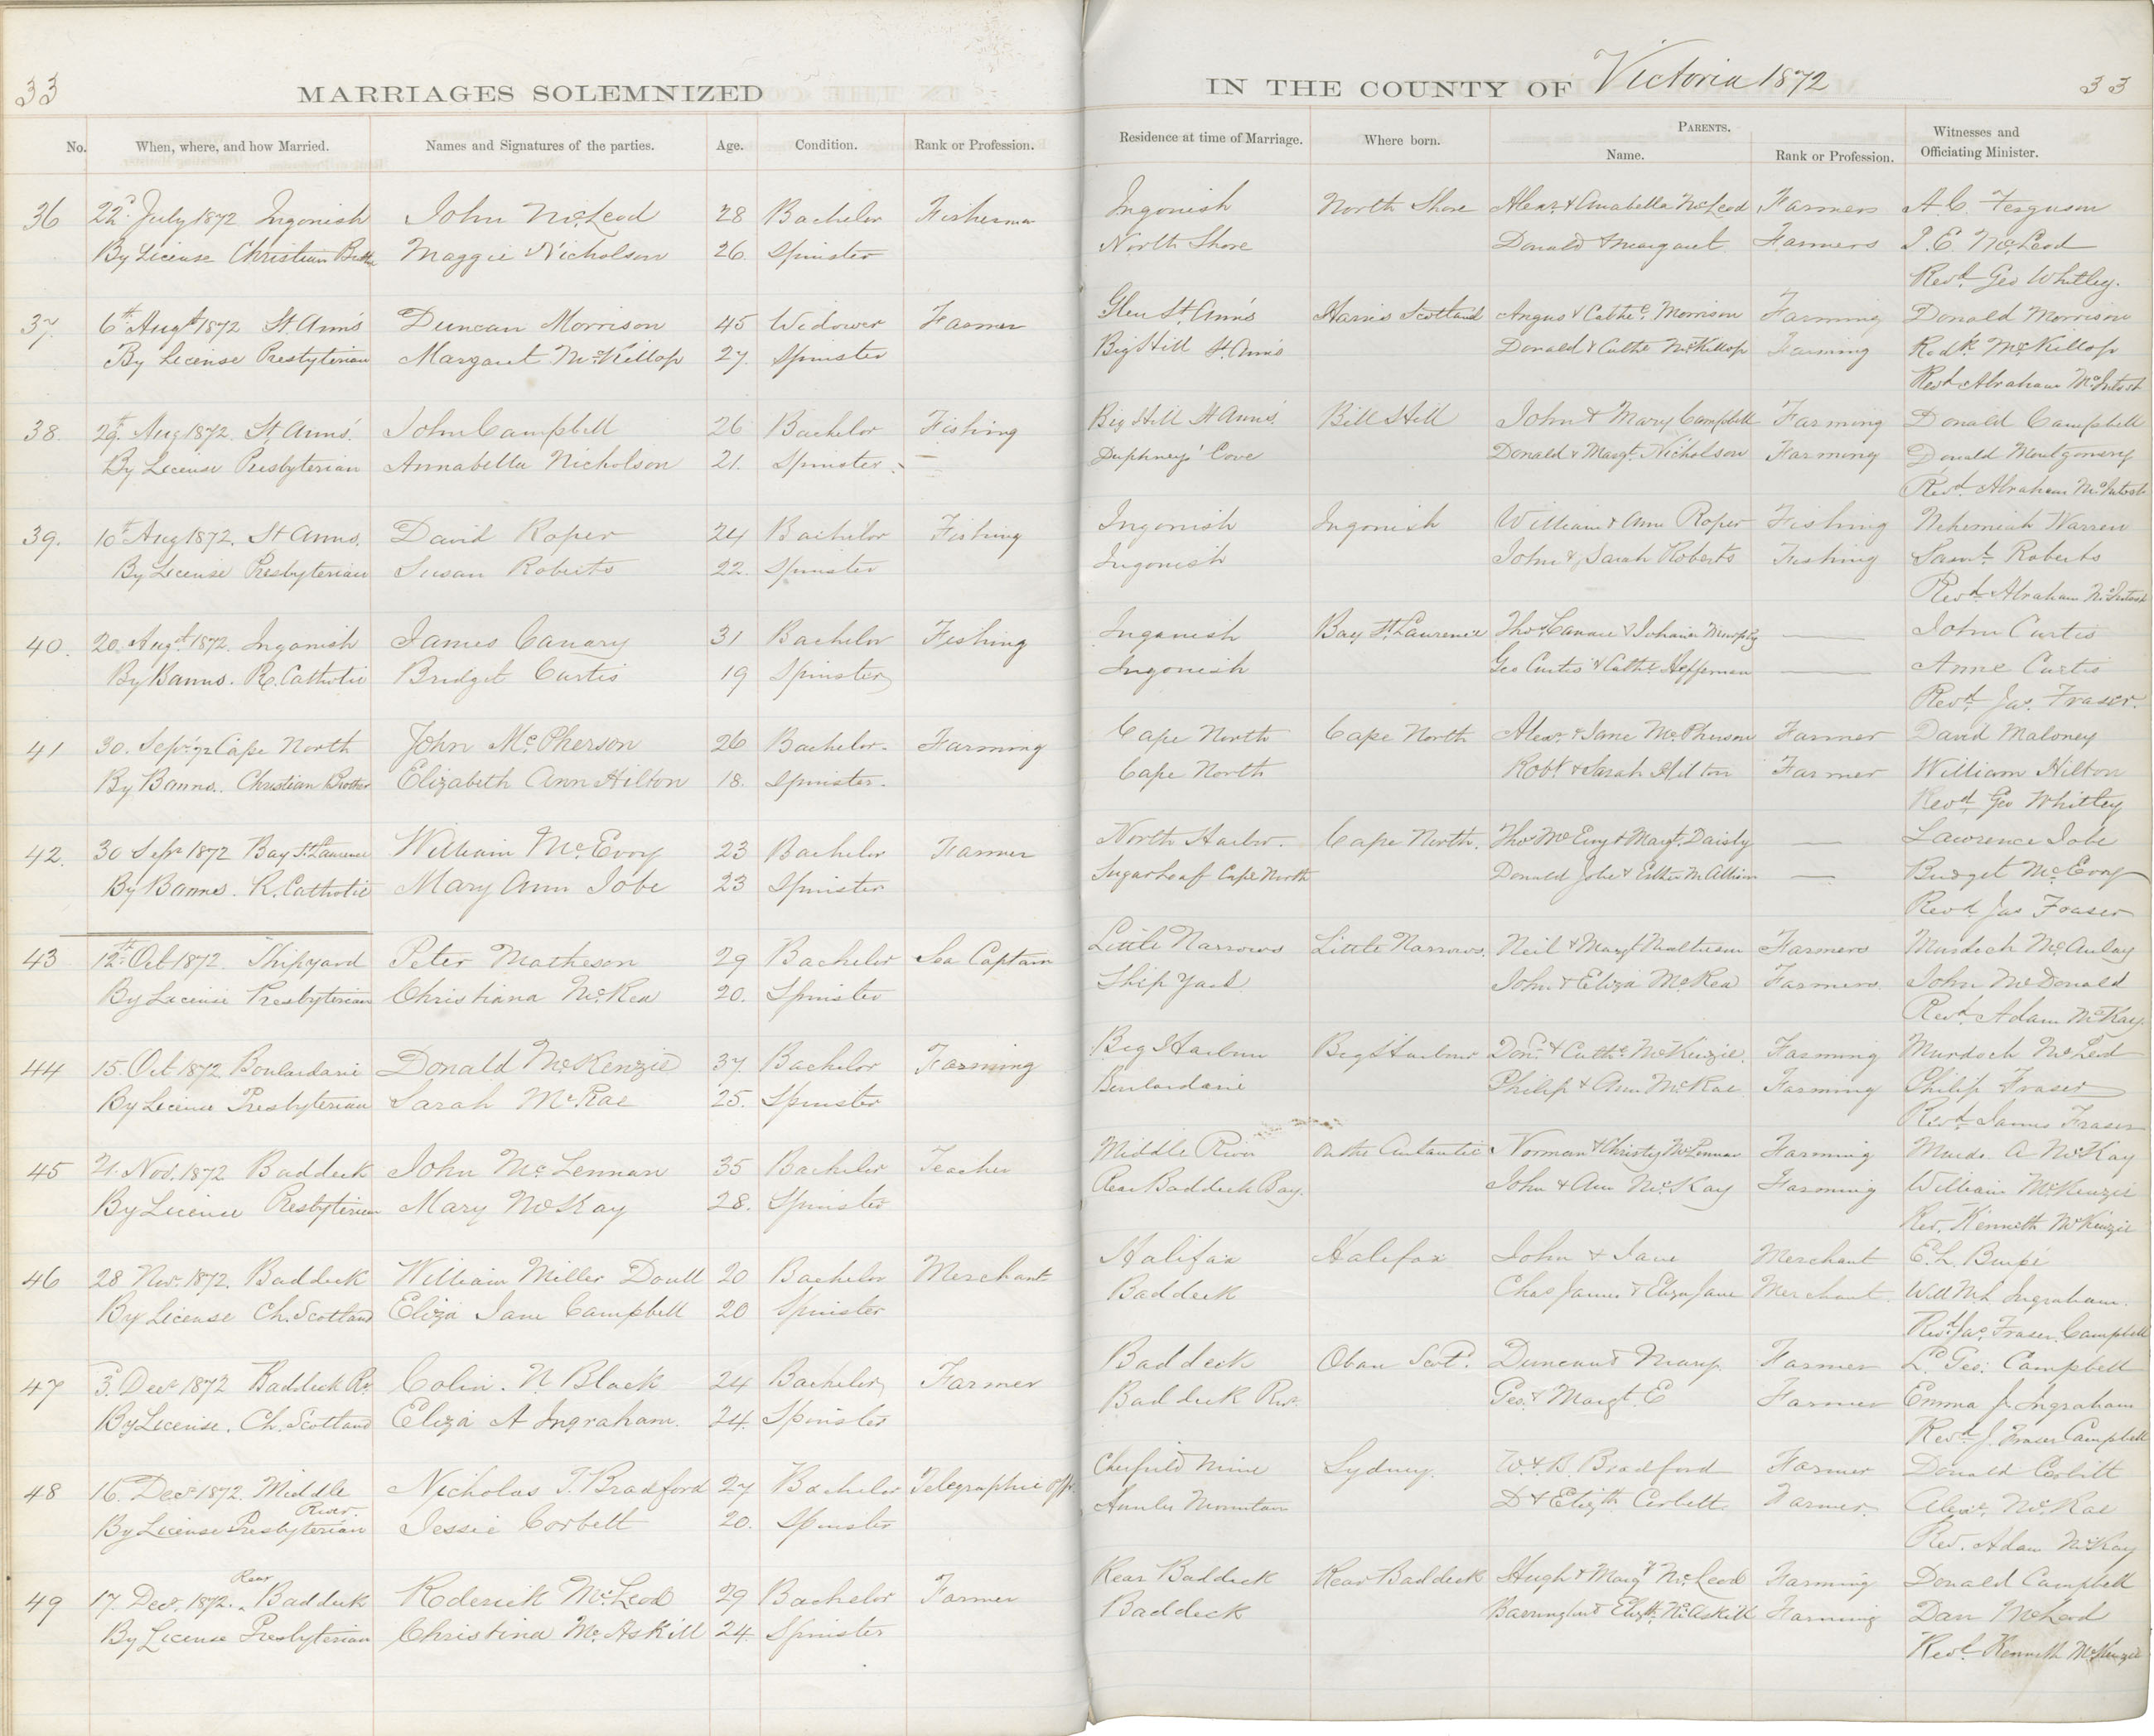 33
MARRIAGES SOLEMNIZED
IN THE COUNTY OF Victoria 1872
33
No. When, where, and how Married. Names and Signatures of the parties. Age. Condition. Rank or Profession. Residence at time of Marriage. Where born. PARENTS. Name. Rank or Profession. Witnesses and Officiating Minister.
36 22d July 1872 Ingonish John McLeod 28 Bachelor Fisherman Ingonish North Shore Alexr & Anabella McLeod Farmers A. C. Ferguson
By License Christian Maggie Nicholson 26. Spinster North Shore Donald & Margaret Farmers J. E. McLeod
Revd. Geo Whitley.
37. 6th Augt 1872 St. Ann's Duncan Morrison 45 Widower Farmer Glen St. Ann's Harris Scotland Angus & Cathe. Morrison Farming Donald Morrison
By License Presbyterian Margaret McKillop 27. Spinster Big Hill St. Ann's Donald & Cathe McKillop Farming Rodk. McKillop
Revd Abraham McIntosh
38. 29th. Aug 1872. St. Anns'. John Campbell 26 Bachelor Fishing Big Hill St Ann's Bill Hill John & Mary Campbell Farming Donald Campbell
By License Presbyterian Annabella Nicholson 21. Spinster. Duphney's Cove Donald & Margt. Nicholson Farming Donald Montgomery
Revd. Abraham McIntosh
39. 10th Aug 1872. St Anns. David Roper 24 Bachelor Fishing Ingonish Ingonish William & Ann Roper Fishing Nehemiah Warren
By License Presbyterian Susan Roberts 22. Spinster Ingonish John & Sarah Roberts Fishing Saml. Roberts
Revd. Abraham McIntosh
40. 20. Augt. 1872. Ingonish James Canary 31 Bachelor Fishing Ingonish Bay St. Laurence Thos Canari & Johana — John Curtis
By Banns. R. Catholic Bridget Curtis 19 Spinster Ingonish Geo Curtis & Cathe. Heffernan — Anne Curtis
Revd. Jas. Fraser.
41 30. Sepr. 72 Cape North John McPherson 26 Bachelor. Farming Cape North Cape North Alexr. & Jane McPherson Farmer David Maloney
By Banns. Christian Brother Elizabeth Ann Hilton 18. Spinster. Cape North Robt & Sarah Hilton Farmer William Hilton
Revd. Geo Whitley
42. 30 Sepr 1872 Bay St. Laurence William McEvoy 23 Bachelor Farmer North Harbr. Cape North. Thos McEvoy & Margt. Daisly — Lawrence Jobe
By Banns. R. Catholic Mary Ann Jobe 23 Spinster Sugarloaf Cape North Donald Jobe & Esther — Bridget McEvoy
Revd Jas Fraser
43 12th. Oct 1872. Shipyard Peter Matheson 29 Bachelor Sea Captain Little Narrows Little Narrows. Neil & Margt Matheson Farmers Murdoch McAulay
By License Presbyterian Christiana McRea 20. Spinster Ship Yard John & Eliza McRea Farmers. John McDonald
Revd. Adam McKay.
44 15. Oct 1872 Boulardarie Donald McKenzie 37 Bachelor Farming Big Harbour Big Harbour Don. & Cathe. McKenzie. Farming Murdoch McLeod
By License Presbyterian Sarah McRae 25. Spinster Boulardarie Philip & Ann McRae Farming Philip Fraser
Revd. James Fraser
45 21. Nov. 1872. Baddeck John McLennan 35 Bachelor Teacher Middle River On the Norman & Christy McLennan Farming Murdo. A McKay
By License Presbyterian Mary McKay 28. Spinster Rear Baddeck Bay. John & Ann McKay Farming William McKenzie
Rev. Kenneth McKenzie
46 28 Nov. 1872. Baddeck William Miller Doull 20 Bachelor Merchant Halifax Halifax John & Jane Merchant E. L.
By License Ch. Scotland Eliza Jane Campbell 20 Spinster Baddeck Chas James & Eliza Jane Merchant. Ingraham.
Revd. Jas. Fraser Campbell
47 3. Decr 1872 Baddeck Rr. Colin. N. Black 24 Bachelor Farmer Baddeck Oban Scotd. Duncan & Mary. Farmer L. Geo: Campbell
By License. Ch. Scotland Eliza A Ingraham. 24. Spinster Baddeck Rivr. Geo. & Margt. E Farmer Emma J. Ingraham
Revd. J. Fraser Campbell
48 16. Decr 1872. Middle River. Nicholas T. Bradford 27 Bachelor Telegraphic Offr. Mine Sydney. W. & B. Bradford Farmer Donald Corbitt
By License Presbyterian Jessie Corbett 20. Spinster Hunter Mountain D & Elizth Corbett. Farmer. Alexr. McRae
Rev. Adam McKay
49 17. Decr. 1872. Rear Baddeck Roderick McLeod 29 Bachelor Farmer Rear Baddeck Rear Baddeck Hugh & Margt McLeod Farming Donald Campbell
By License Presbyterian Christina McAskill 24. Spinster Baddeck & Elizth. McAskill Farming Dan McLeod
Revd. Kenneth McKenzie